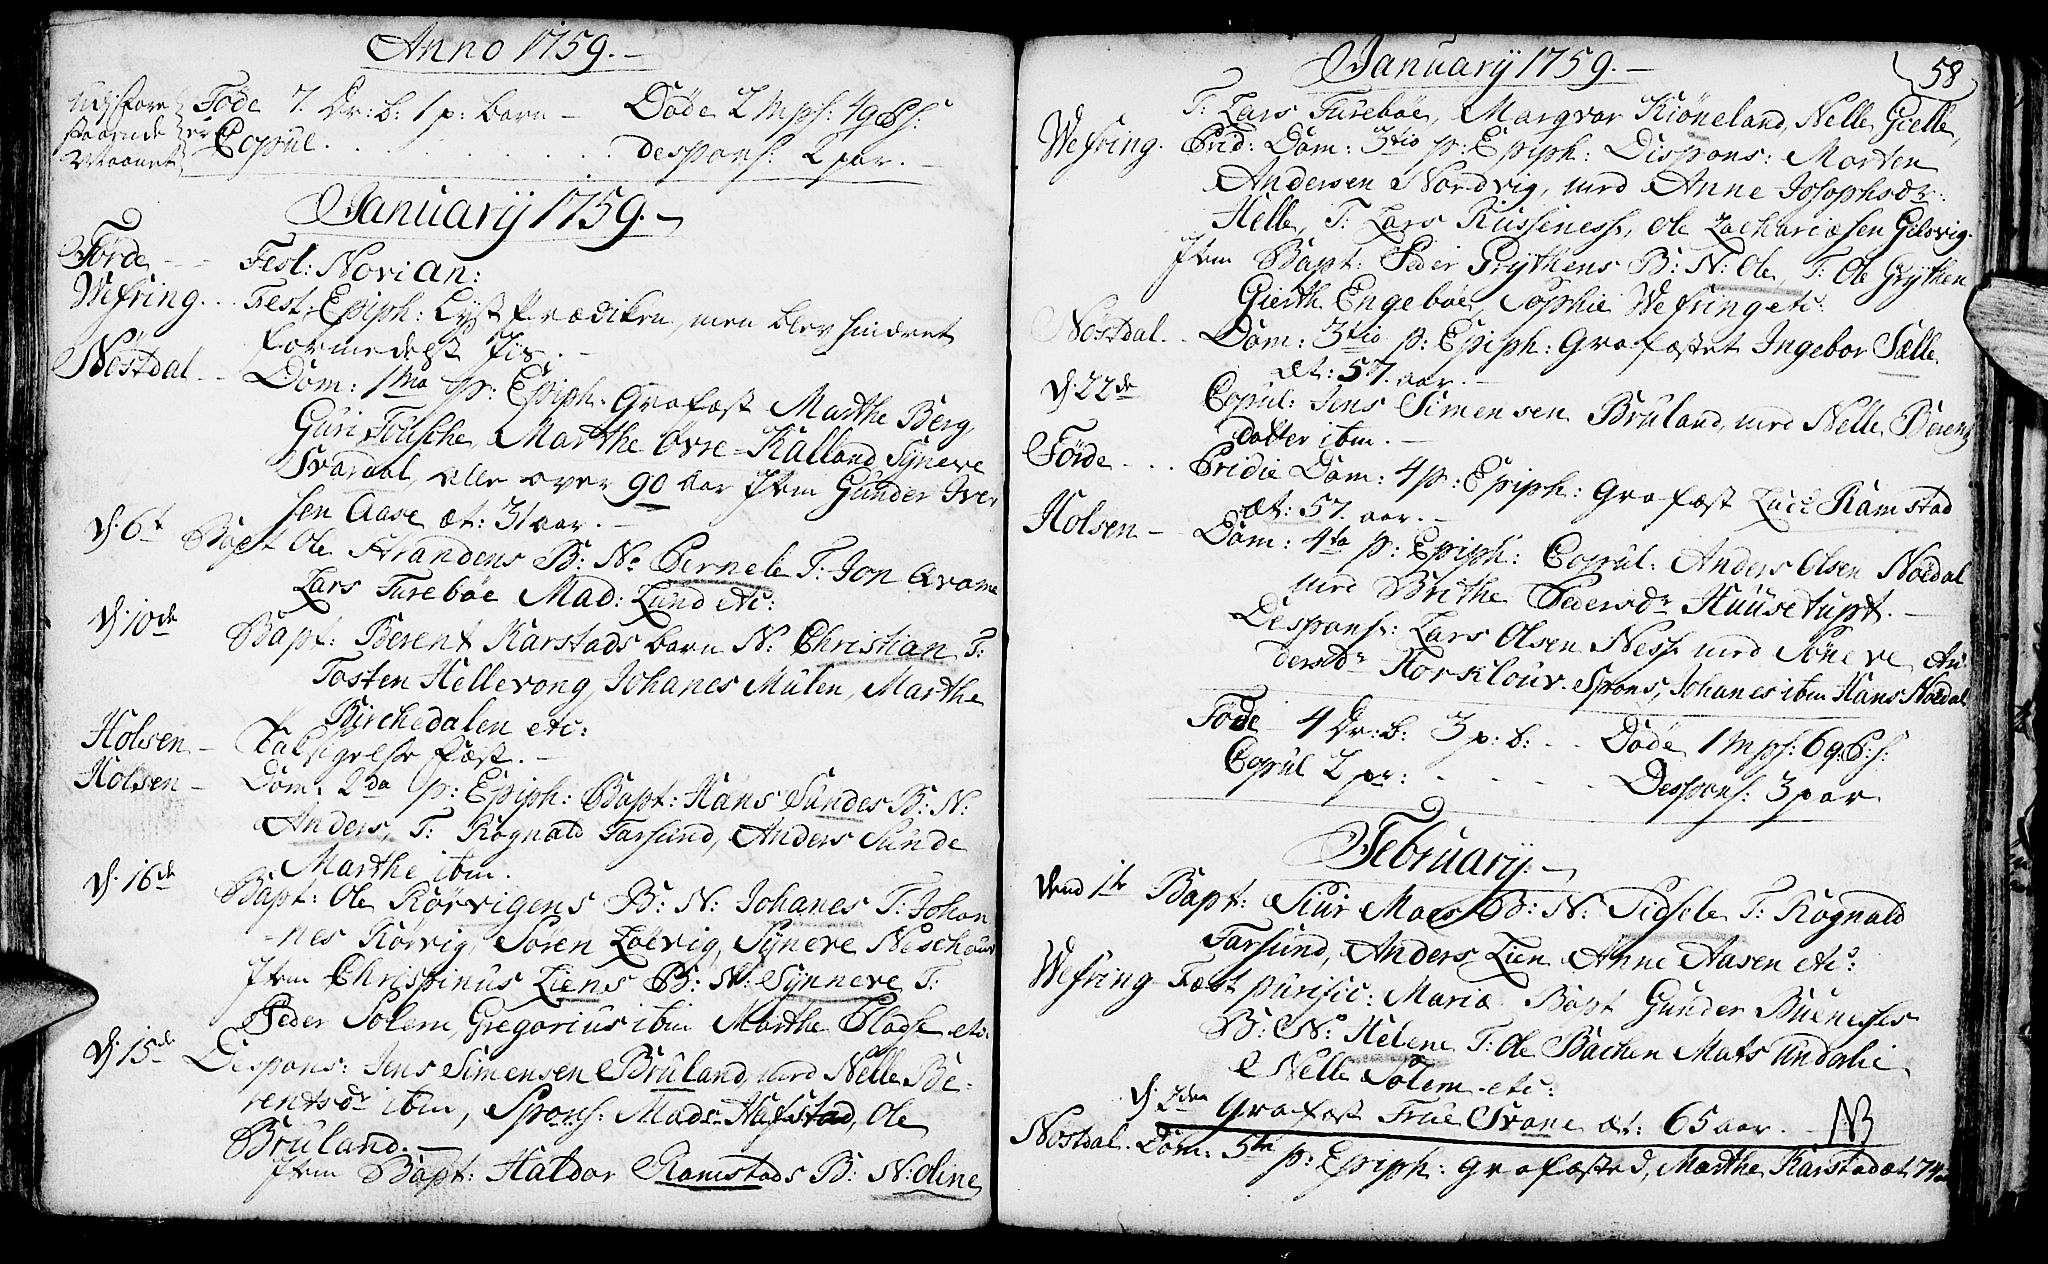 Anno 1759.
Udj fore Føde 7 Dr: b: 1 p: barn – Døde 2 mps: 4 qs:
staaende er Copul. . . . . . . . Despons: 2 par. –
Maanet
Januarij 1759.
Førde Fest: Novi an:
Wefring. Fest: Epiph: Lyst Prædiken, men blev hindret
formedelst Jis. –
Nøstdal Dom: 1ma p: Epiph. Grafæst Marthe Berg,
Guri Tousche, Marthe Øvre-Kalland Syneve
Svardal, alle over 90 aar Item Gunder Iver
sen Aase æt: 31 aar. –
d. 6t Bapt Ole Strandens B: N: Pernele T: Jon Qvame
Lars Furebøe Mad: Lund etc:
d. 10de Bapt: Berent Karstads barn N: Christian T:
Tosten Hellevong, Johanes Mulen, Marthe
Birchedalen etc:
Holsen – Taksigelse fæst. –
Holsen – Dom. 2da p: Epiph: Bapt: Hans Sundes B: N:
Anders, T: Rognald Farsund, Anders Sunde
Marthe ibm.
d. 16de Bapt: Ole Rørvigens B: N: Johanes T: Johan
nes Rørvig, Søren Løevig, Syneve
Item Christinus Liens B: N: Synneve T:
Peder Solem, Gregorius ibm Marthe etc.
d. 15de Despons: Jens Simensen Bruland, med Nelle Be-
rentsdr ibm, Spons: Mads Hafstad, Ole
Bruland. –
Item Bapt: Haldor Ramstads B: N: Oline
Januarij 1759. – 58
T: Lars Furebøe, Margvar Kiøneland, Nelle Gielle,
Wefring. Prid: Dom: 3tio p: Epiph: Dispons: Morten
Andersen Nordvig, med Anne Josophsdr:
Helle, T: Lars Russeness, Ole Zachariæsen Gelsvig.
Item Bapt: Peder Grythens B: N: Ole, T: Ole Grythen
Gierth Engebøe, Sophie Wefring etc:
Nøstdal. Dom: 3tio p: Epiph: Grafæstet Ingebor Sælle
æt: 57 aar. –
d. 22de Copul: Jens Simensen Bruland, med Nelle Berentz
datter ibm. –
Førde Pridie Dom: 4 p: Epiph: Grafæst Ramstad
æt: 57 aar. –
Holsen – Dom: 4ta p: Epiph: Copul: Anders Olsen Noedal
med Brithe Pedersdr Huusetupt. –
Despons: Lars Olsen Ness med Søneve An
dersdr Horsklour. Spons: Johanes ibm Hans Noedal
Føde 4 Dr: b: 3 p: b: Døde 1 mps: 6 q: P: s:
Copul 2 pr: Despons: 3 par
February. –
dend 1te Bapt: Siur Moes B: N: Sidsele T: Rognald
Farsund, Anders Lien Anne Aasen etc:
Wefring Fæst purific: Mariæ Bapt Gunder Bueness
B: N: Helene T: Ole Bachen Mats Undalie
Nelle Solem etc:
d. 2den Grafæst True Svane æt: 65 aar. – NB
Nøstdal. Dom: 5ta p: Epiph: Grafæsted, Marthe Karstad æt 74